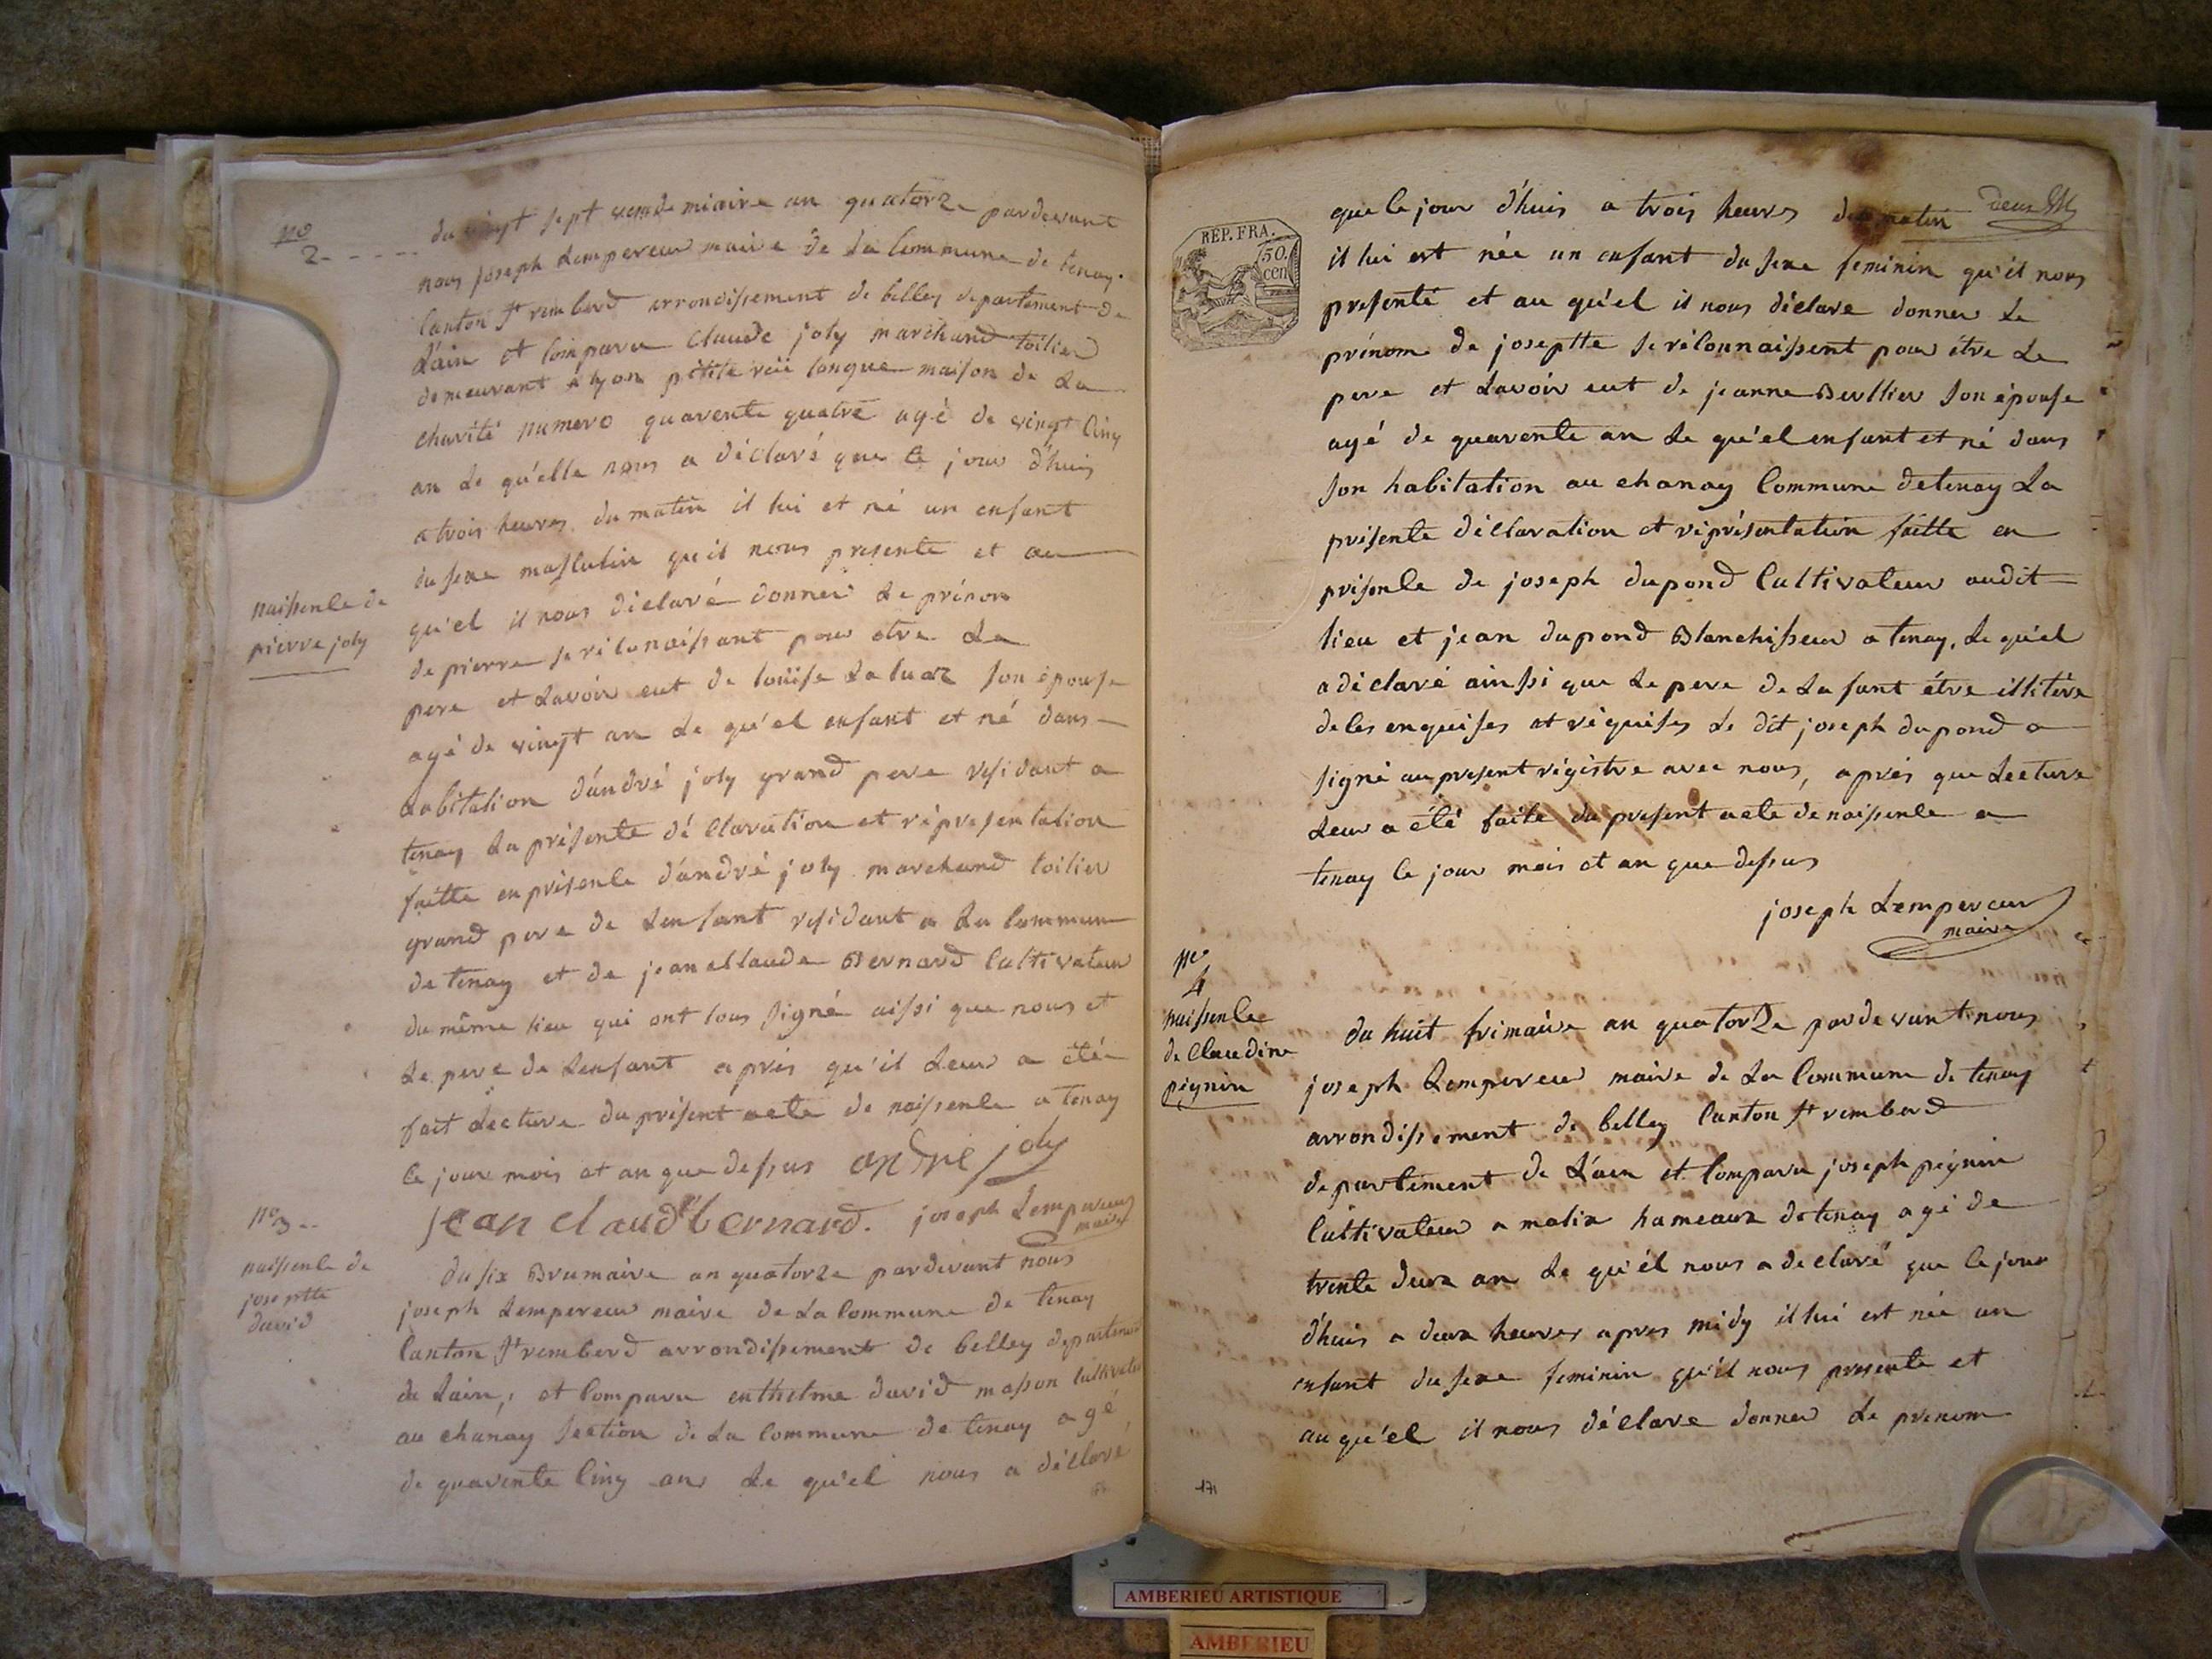 no
2 - - - - - du vingt sept vendemiaire an quatorze pardevant
nous joseph Lempereur maire de La Commune de tenay.
Canton st remberd arrondissement de belley departement de
L'ain et Comparu Claude joly marchand toilier
demeurant a lyon petite ruë longue maison de La
charité numero quarente quatre agé de vingt Cinq
an Le qu'elle nous a déclaré que Ce jour d'huis
a trois heures du matin il lui et né un enfant
du sexe masculin qu'il nous presente et au
naissence de
pierre joly
qu'el il nous déclaré donner Le prénom
de pierre se réConaissant pour etre Le
pere et Lavoir eut de loüise La
agé de vingt an Le qu'el enfant et né dans
Labitation d'andré joly grand pere residant a
tenay La présente déClaration et répresentation
faitte en présence d'andré joly marchand toilier
grand pere de Lenfant residant a La Commune
de tenay et de jean claude Bernard Cultivateur
du même lieu qui ont tous signé aissi que nous et
Le pere de Lenfant aprés qu'il Leur a été
fait Lecture du présent acte de naissence a tenay
Ce jour mois et an que dessus andré joly
jean claud bernard. joseph Lempereur
maire
no 3 - -
naissence de
joseptte
david
du six Brumaire an quatorze pardevant nous
joseph Lempereur maire de La Commune de tenay
Canton st remberd arrondissement de belley departement
de Lain, et Comparu enthelme david masson Cultivateur
au chanay section de La Commune de tenay agé
de quarente Cinq an Le qu'el nous a déclaré
REP. FRA.
50.
cen
que Ce jour d'huis a trois heures du matin
il lui est née un enfant du sexe feminin qu'il nous
presenté et au qu'el il nous déclare donner Le
prénom de joseptte se réConnaissent pour étre Le
pere et Lavoir eut de jeanne Berllier son épouse
agé de quarente an Le qu'el enfant et né dans
son habitation au chanay Commune de tenay La
présente déClaration et réprésentation faitte en
présence de joseph dupond Cultivateur audit
lieu et jean dupond Blanchisseur a tenay. Le qu'el
a déclaré ainssi que Le pere de La fant étre illitére
de Ces enquises et réquises Le dit joseph dupond a
signé au present régistre avec nous, aprés que Lecture
Leur a été faite du present acte de naissence a
tenay Ce jour mois et an que dessus
joseph Lempereur
maire
no
4
naissence
de Claudine
pignin
du huit frimaire an quatorze pardevant nous
joseph Lempereur maire de La Commune de tenay
arrondissement de belley Canton st remberd
departement de L'ain et Comparu joseph pégnin
Cultivateur a malix hameaux de tenay agé de
trente deux an Le qu'él nous a declaré que Ce jour
d'huis a deux heures apres midy il lui est née un
enfant du sexe feminin qu'il nous presente et
au qu'el il nous déclare donner Le prenom
171
AMBERIEU ARTISTIQUE
AMBERIEU